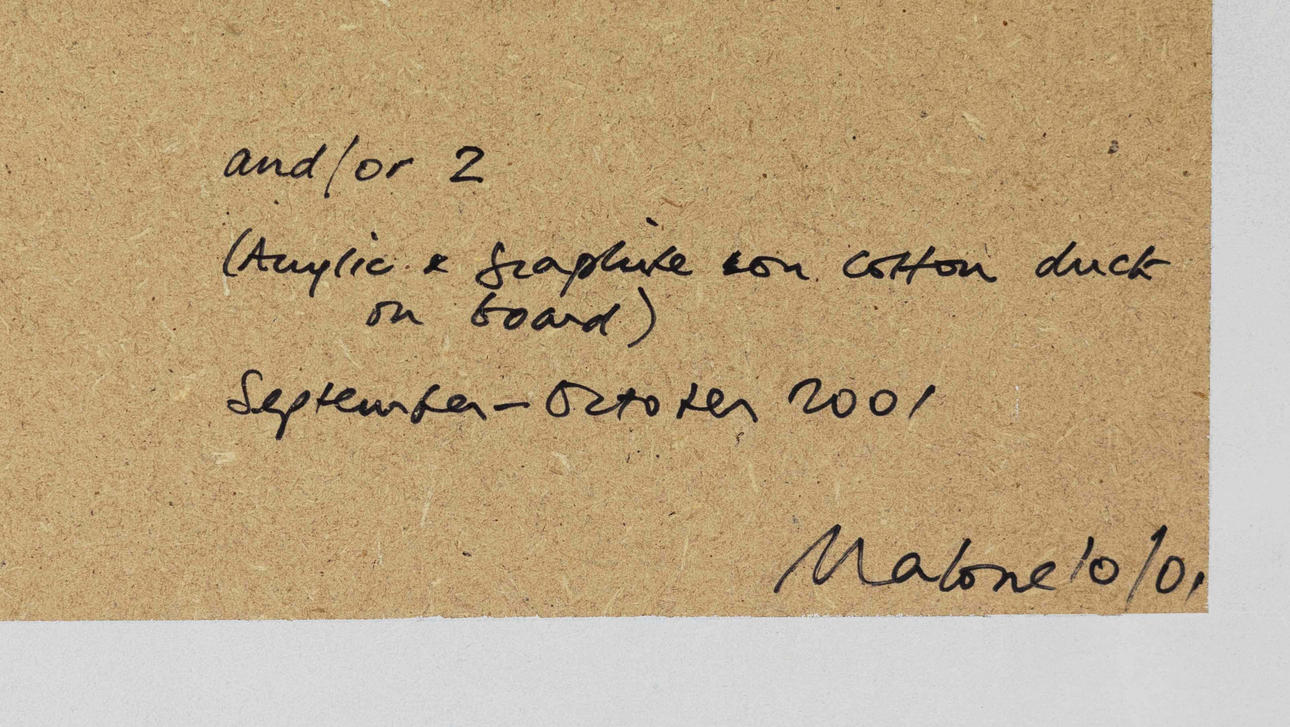 and/or 2
(Acrylic & graphite on cotton duck
on board)
September - October 2001
Malone 10/01